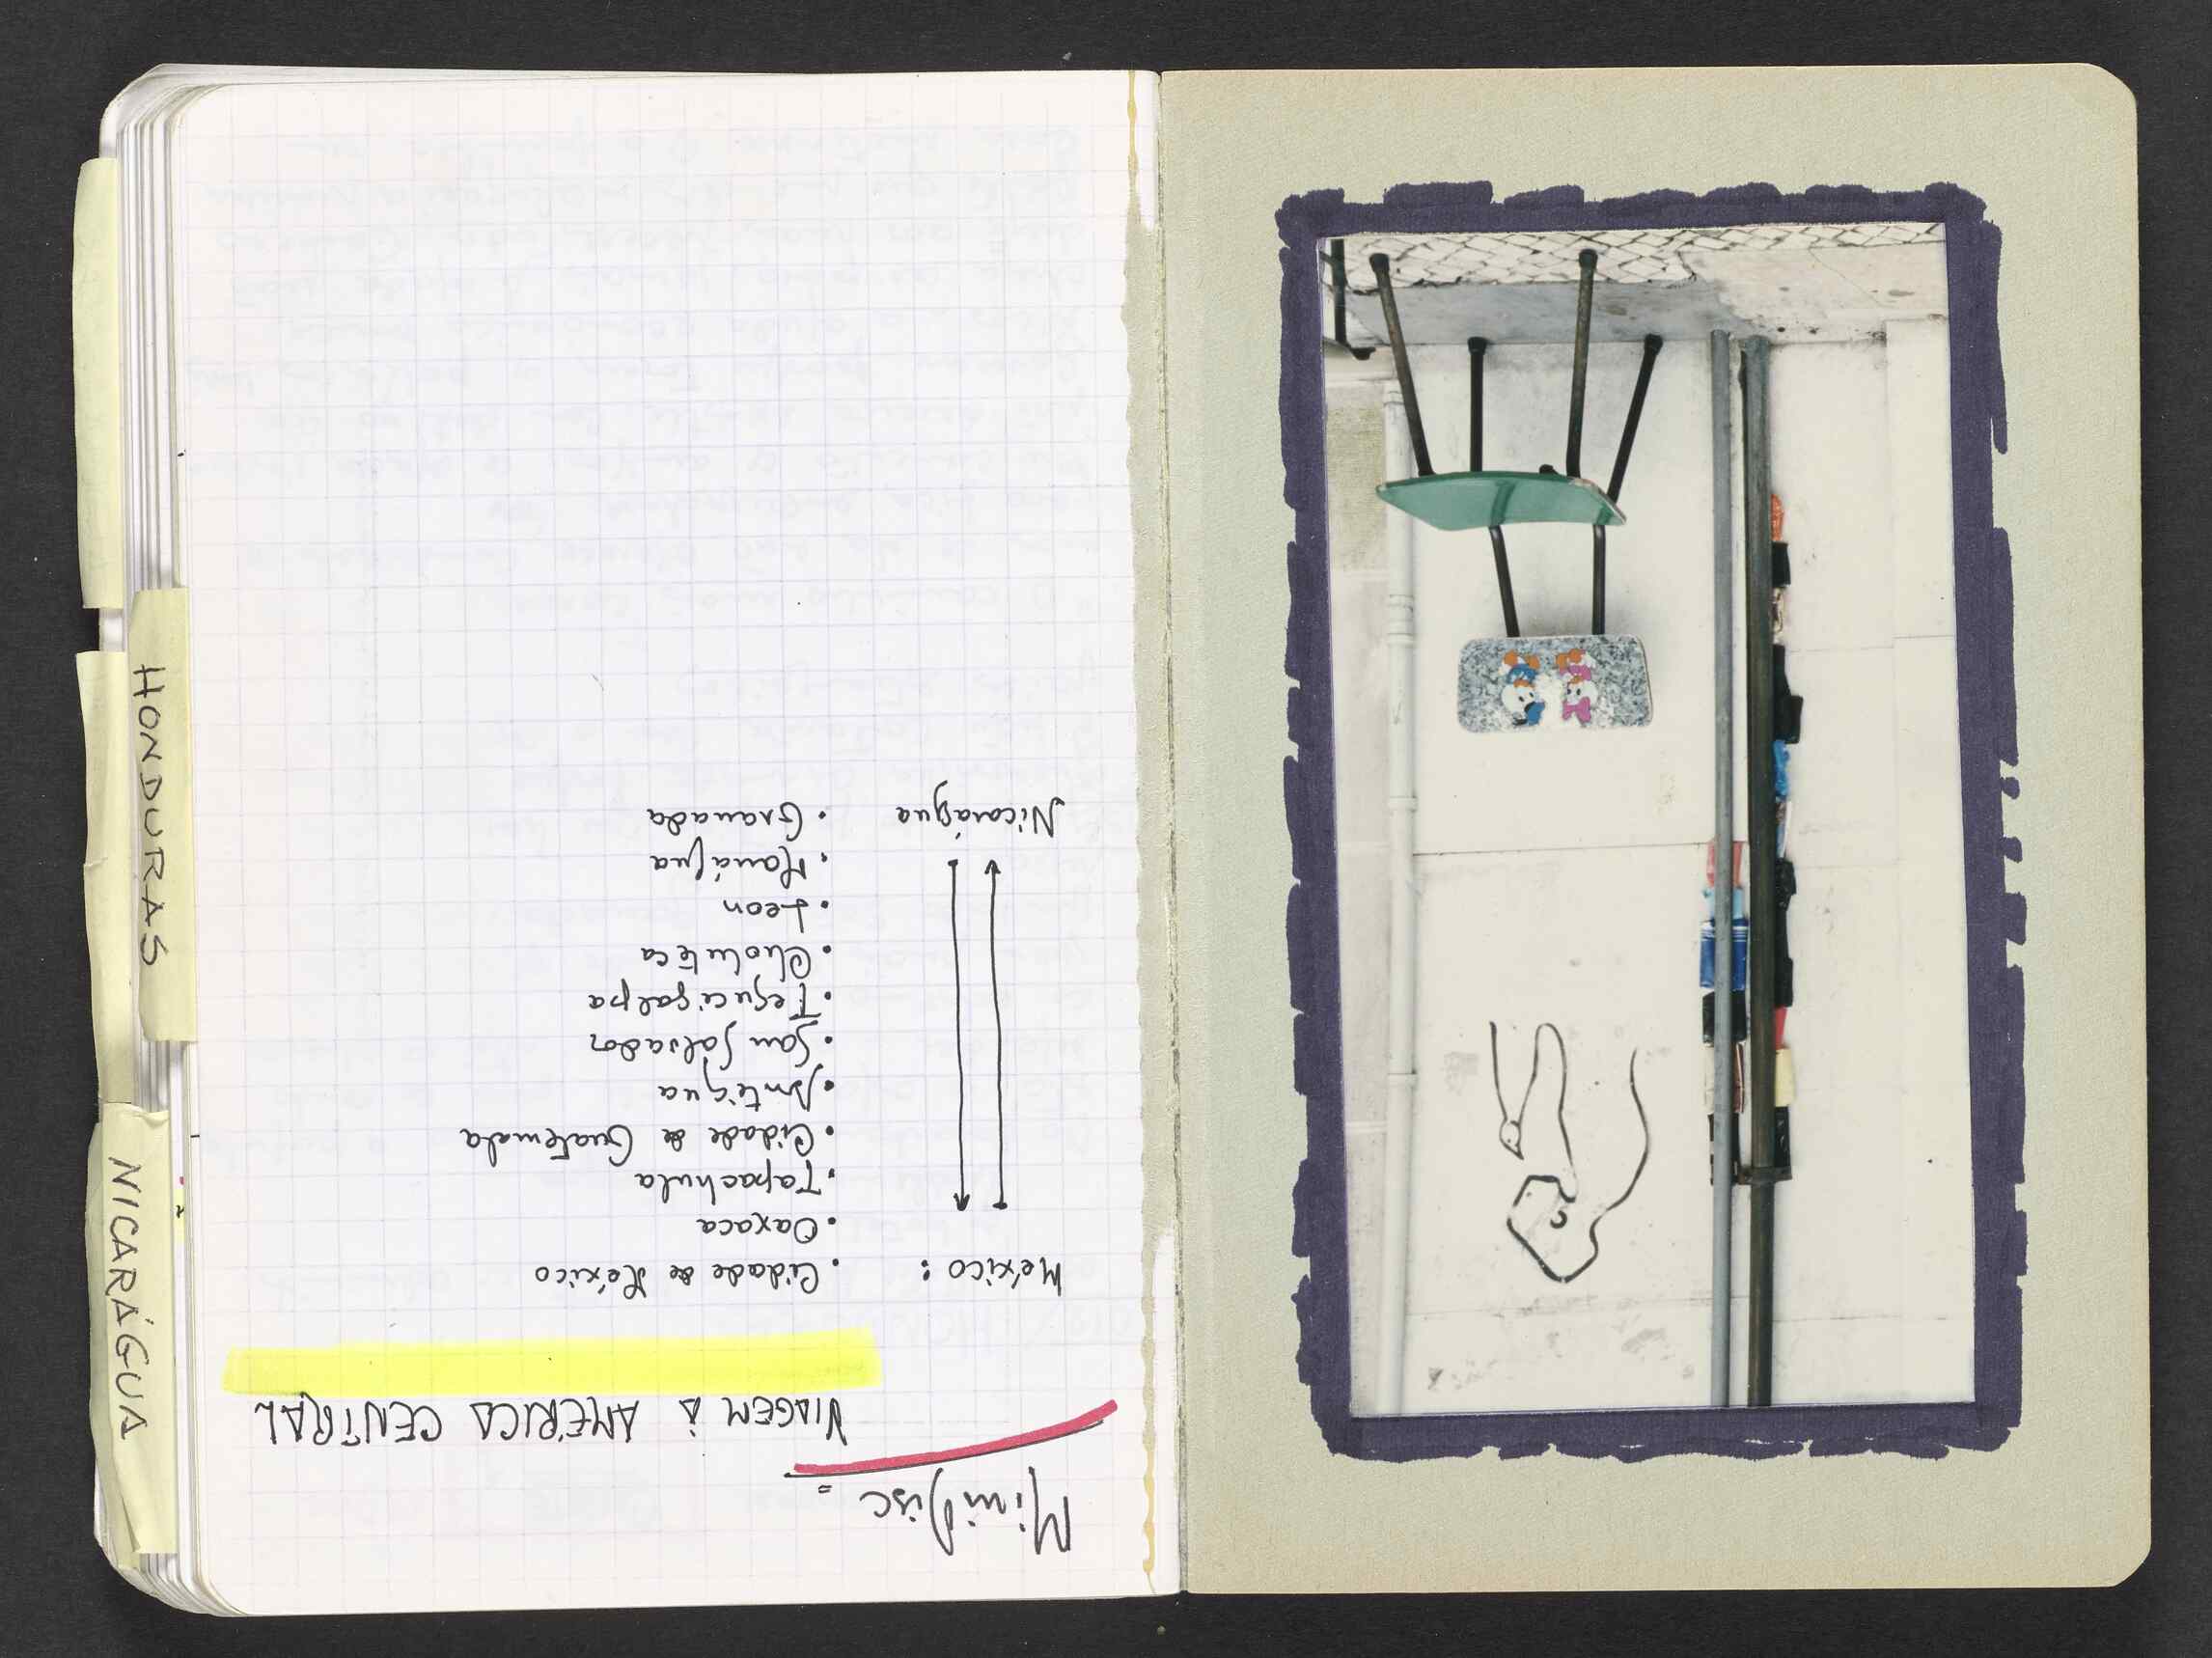 MiniDisc =
VIAGEM À AMÉRICA CENTRAL
México: • Cidade de México
• Oaxaca
• Tapachula
• Cidade de Guatemala
• Antigua
• San Salvador
• Tegucigalpa
• Choluteca
• Leon
• Manágua
Nicarágua • Granada
HONDURAS
NICARÁGUA